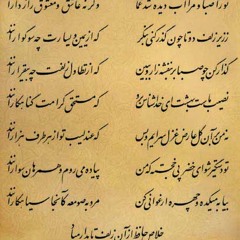 تو را صبا و مرا آب دیده شد غماز وگرنه عاشق و معشوق رازدارانند
ز زیر زلف دوتا چون گذر کنی بنگر که از یمین و یسارت چه سوگوارانند
گذار کن چو صبا بر بنفشه زار و ببین که از تطاول زلفت چه بیقرارانند
نصیب ماست بهشت ای خداشناس برو که مستحق کرامت گناهکارانند
نه من بر آن گل عارض غزل سرایم و بس که عندلیب تو از هر طرف هزارانند
تو دستگیر شو ای خضر پی خجسته که من پیاده می‌روم و همرهان سوارانند
بیا به میکده و چهره ارغوانی کن مرو به صومعه کآنجا سیاهکارانند
خلاص حافظ از آن زلف تابدار مباد